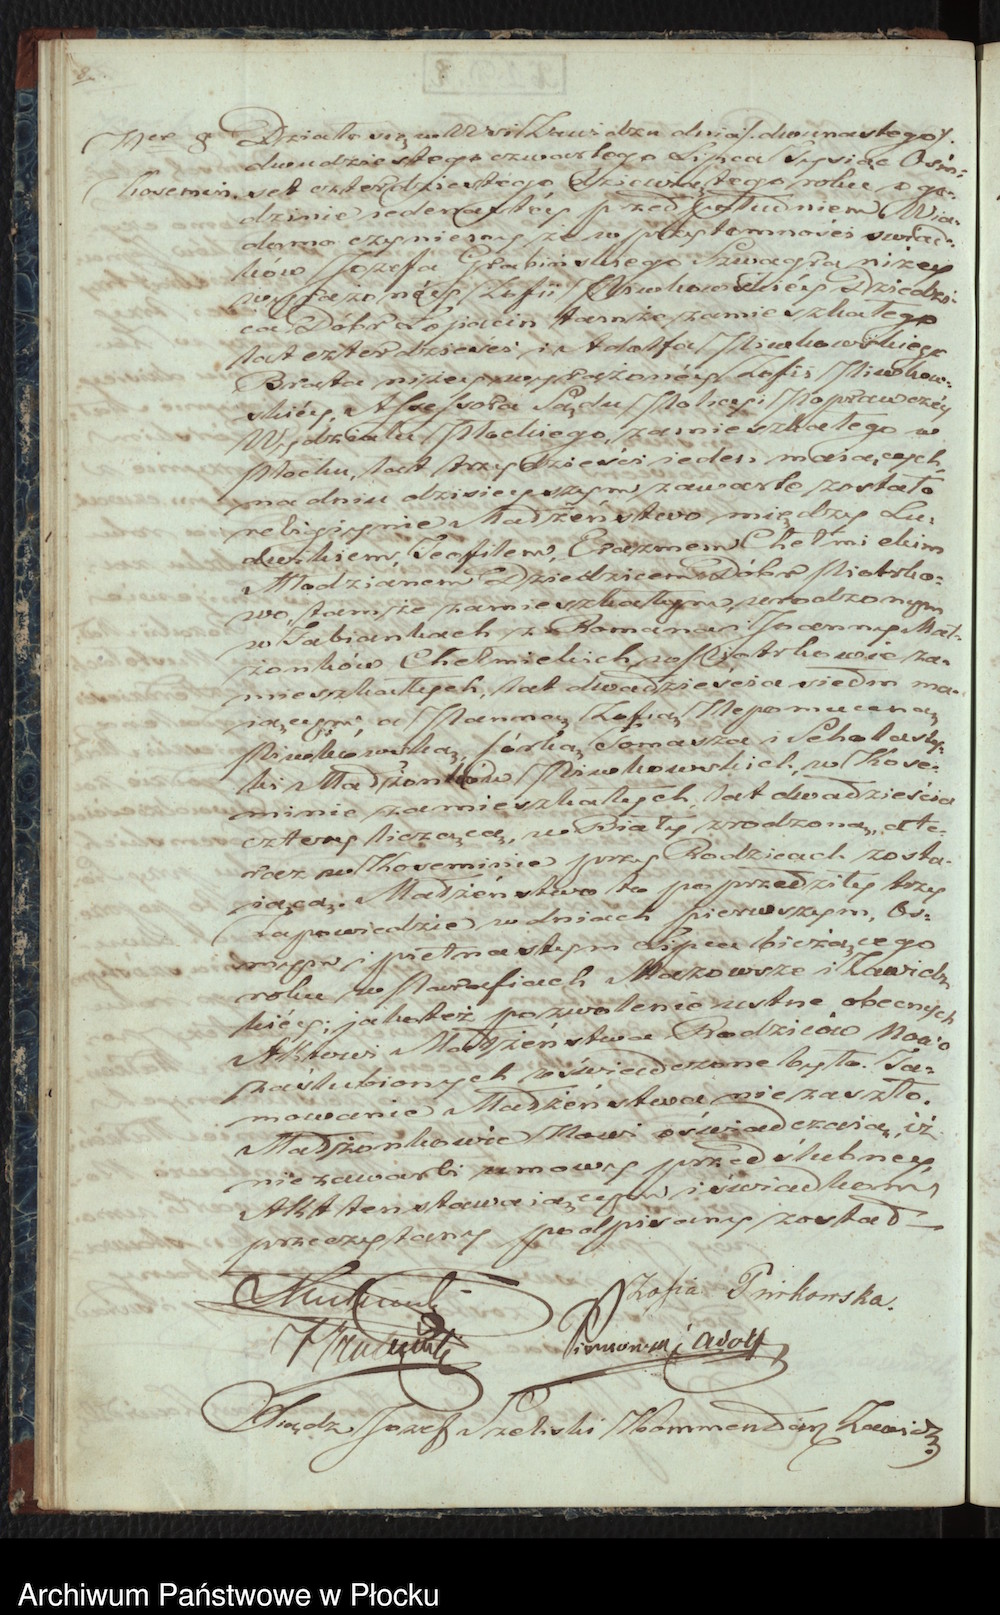 8
Ner 8 Działo się w Wsi Zawidzu dnia /: dwunastego /:
dwudziestego czwartego Lipca Tysiąc Ośm=
Kosemin. set czterdziestego dziewiątego roku o go=
dzinie jedenastey przed południem Wia=
domo czyniemy że w przytomności świad=
ków Józefa Grabińskiego Szwagra niżey
wyrażonéy Zofii Piwkowskiéy Dziedzi=
ca Dóbr Łopacin tamże zamieszkałego
lat czterdzieści i Adolfa Piwkowskiego
Brata niżey wyrażonéy Zofii Piwkow=
skiéy, Assessora Sądu Policyi Poprawczéy
Wydziału Płockiego, zamieszkałego w
Płocku, lat trzydzieści ieden maiących,
na dniu dzisieyszym zawarte zostało
religiyne Małżeństwo między Lu=
dwikiem, Teofilem, Erazmem Chełmickim
Młodzianem Dziedzicem Dóbr Piotrko=
wo, tamże zamieszkałym, urodzonym
w Fabiankach z Romana i Joanny Mał=
żonków Chełmickich, w Piotrkowie za=
mieszkałych, lat dwadzieścia siedm ma=
iącym a Panną Zofią Nepomuceną
Piwkowską, córką Tomasza i Scholasty=
ki Małżonków Piwkowskich, w Kose=
minie zamieszkałych, lat dwadzieścia
cztery liczącą, w Biały urodzoną, a te=
raz w Koseminie przy Rodzicach zosta=
iącą. Małżeństwo to poprzedziły trzy
Zapowiedzie w dniach pierwszym, Os=
mym i piętnastym Lipca bieżącego
roku w Parafiach Mazowsze i Zawidz
kiéy; jakoteż pozwolenie ustne obecnych
Aktowi Małżeństwa Rodziców Nowo
zaślubionych oświadczone było. Ta=
mowanie Małżeństwa nie zaszło.
Małżonkowie Nowi oświadczaią, iż
nie zawarli umowy przedślubney,
Akt ten stawaiącym i świadkom
przeczytany podpisany został —
Zofia Piwkowska.
Piwkowski Adolf
Xiądz Józef Szelski Kommendarz Zawidz.
Archiwum Państwowe w Płocku